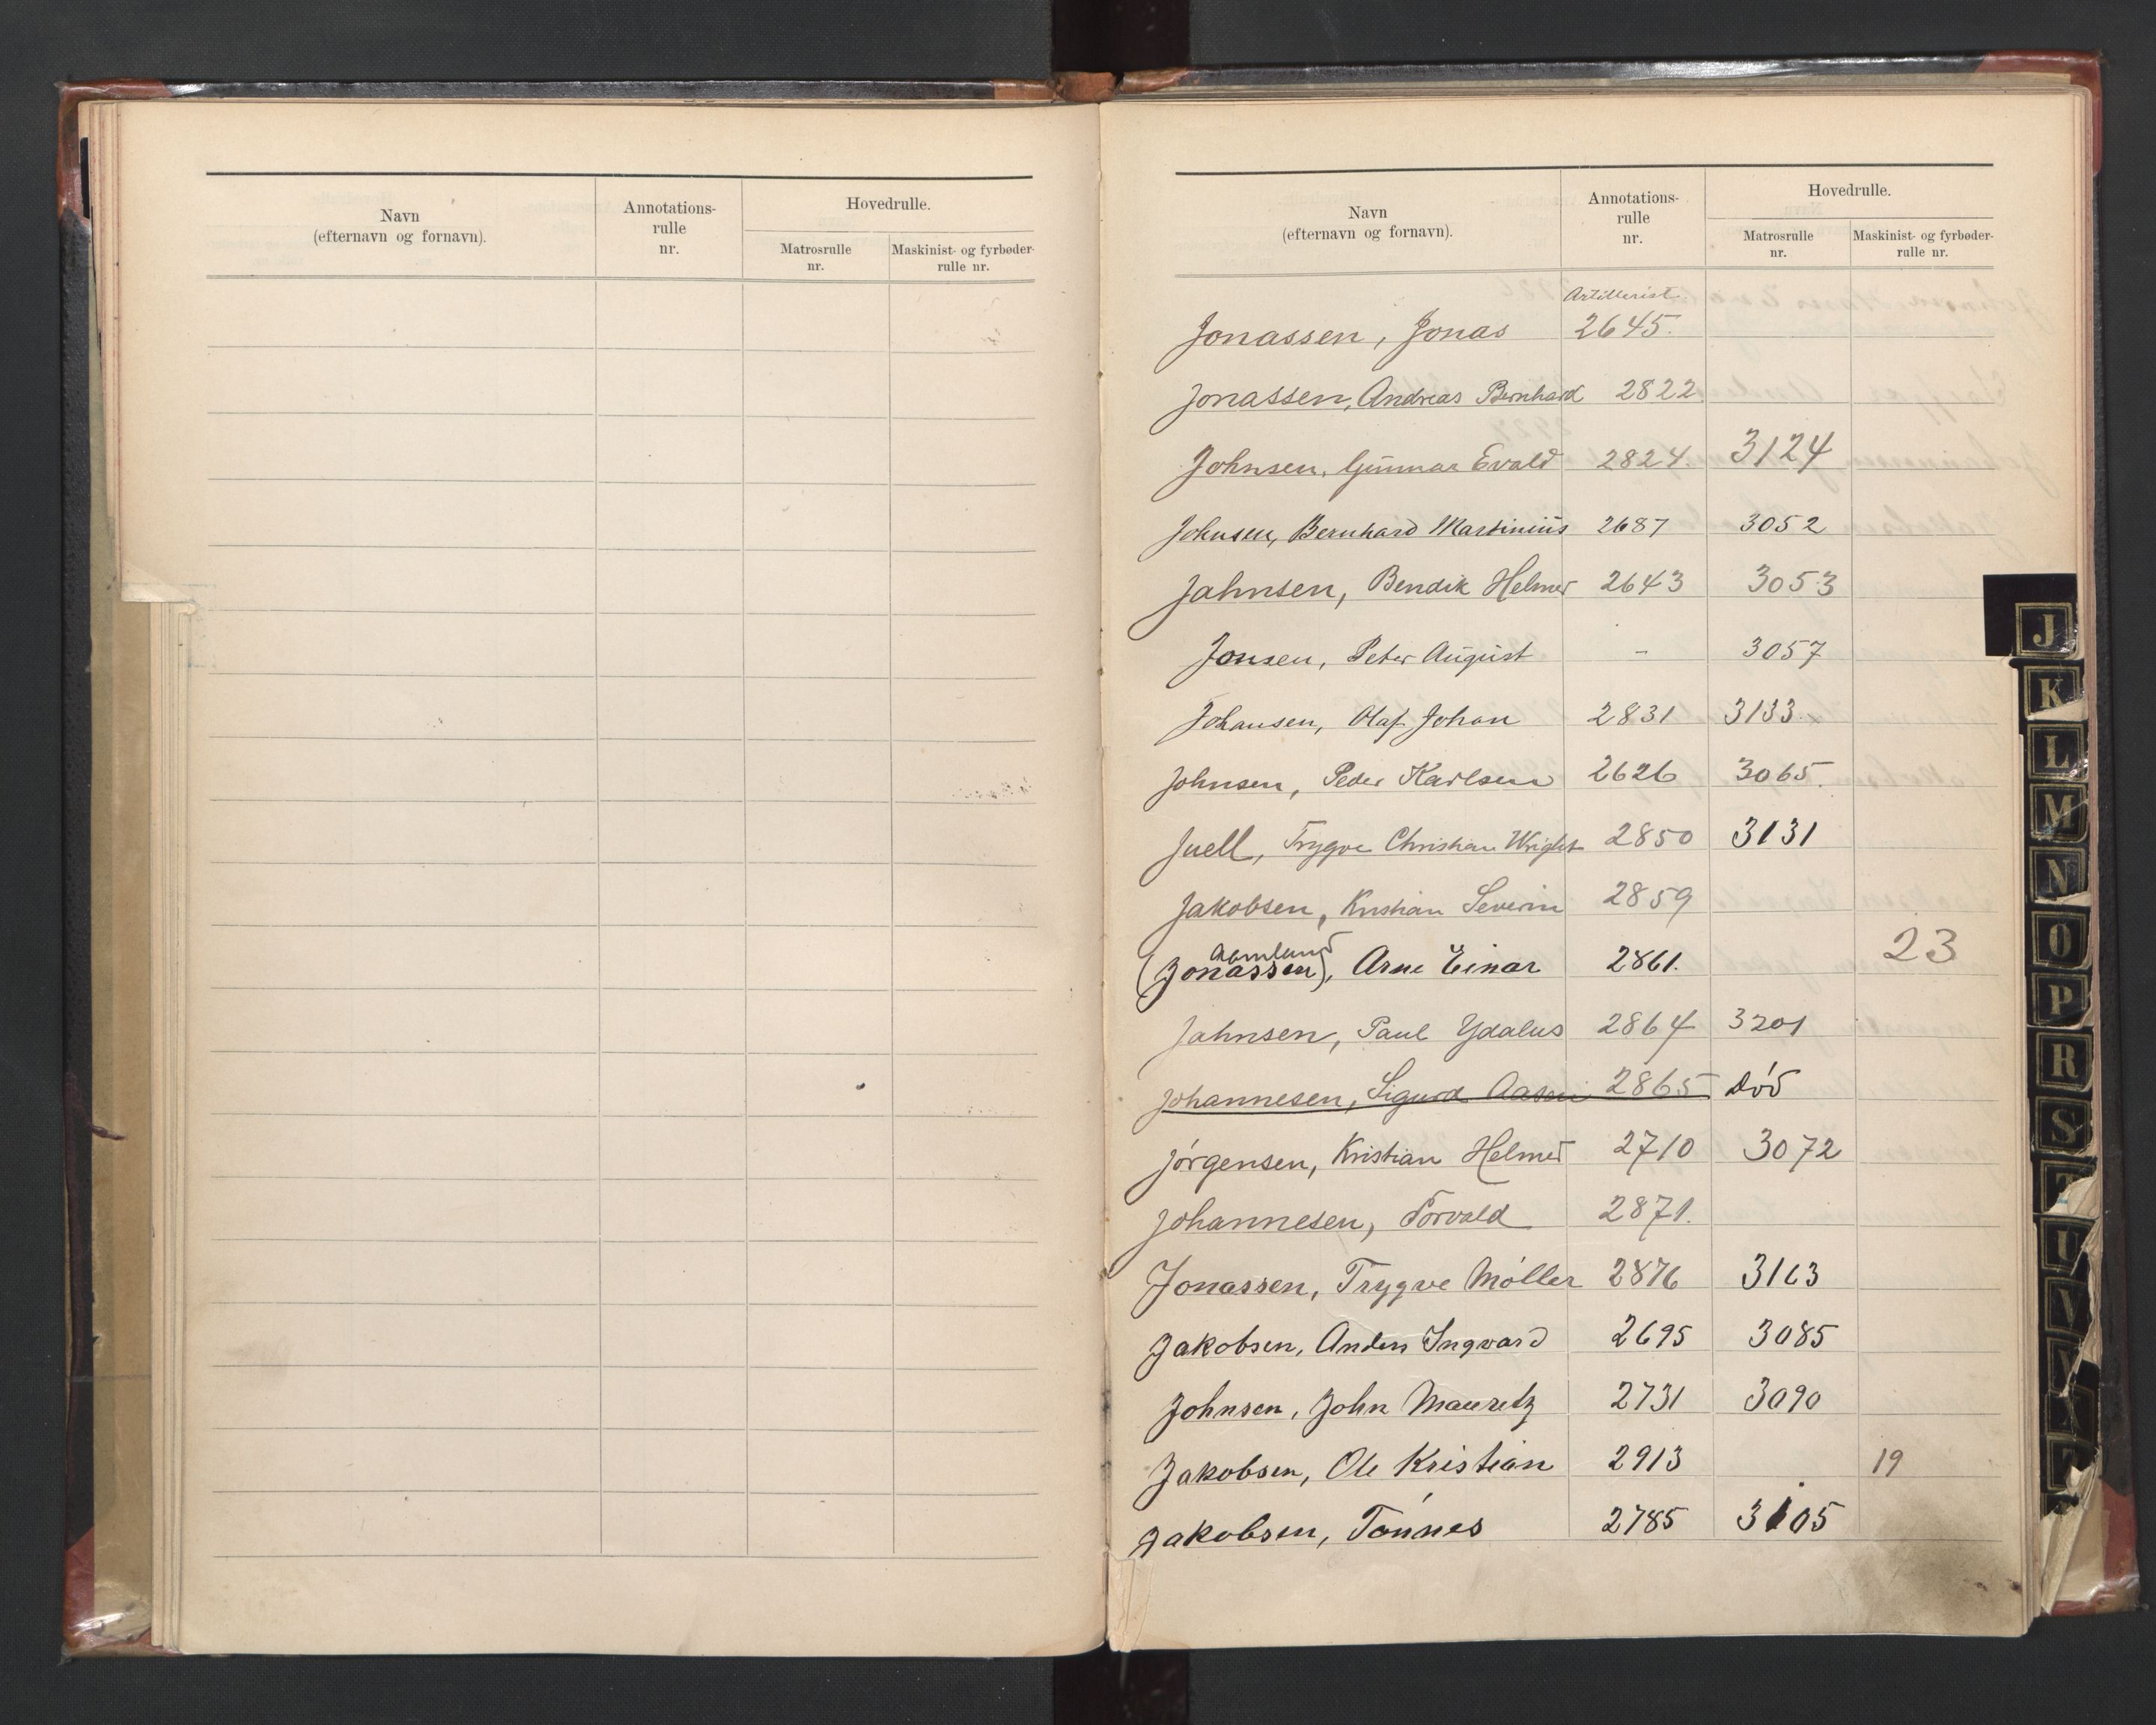 Navn
(efternavn og fornavn).
Annotations-
rulle
nr.
Hovedrulle.
Matrosrulle
nr.
Maskinist- og fyrbøder-
rulle nr.
Navn
(efternavn og fornavn).
Annotations-
rulle
nr.
Hovedrulle.
Matrosrulle
nr.
Maskinist- og fyrbøder-
rulle nr.
Artillerist
Jonassen, Jonas 2645.
Jonassen, Andreas Bernhard 2822.
Johnsen, Gunnar Evald 2824. 3124
Johnsen, Bernhard Martinius 2687 3052
Jahnsen, Bendik Helmer 2643 3053
Jonsen, Peter August - 3057
Johansen, Olaf Johan 2831 3133.
Johnsen, Peder Karlsen 2626 3065.
Juell, Trygve Christian Wright 2850 3131
Jakobsen, Kristian Severin 2859
(Jonassen), Arne Einar 2861. 23
Jahnsen, Paul Ydalus 2864 3201
Johannesen, Sigurd 2865 Död
Jörgensen, Kristian Helmer 2710 3072
Johannesen, Torvald 2871.
Jonassen, Trygve Möller 2876 3163
Jakobsen, Anders Ingvard 2695 3085
Johnsen, John Mauritz 2731 3090
Jakobsen, Ole Kristian 2913 19
Jakobsen, Tönnes 2785 3105
J
K
L
M
N
O
P
R
S
T
U
V